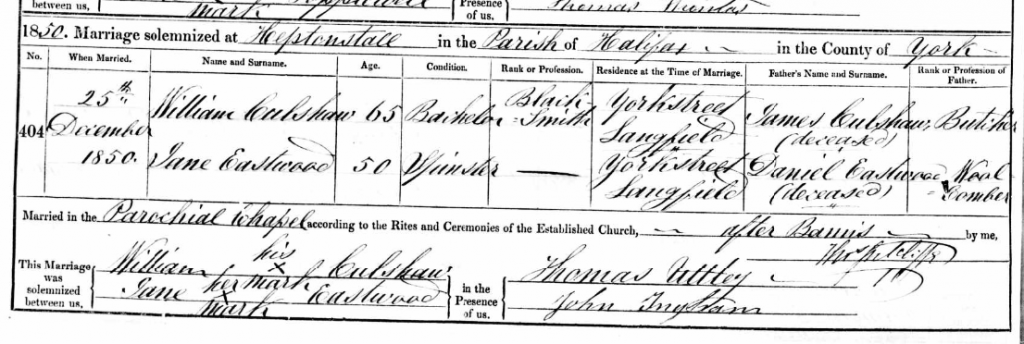 between us, mark Presence of us. Thomas
1850. Marriage solemnized at Heptonstall in the Parish of Halifax in the County of York
No. When Married. Name and Surname. Age. Condition. Rank or Profession. Residence at the Time of Marriage. Father's Name and Surname. Rank or Profession of Father.
404 25th December 1850. William Culshaw 65 Bachelor Black Smith Yorkstreet Langfield James Culshaw (deceased) Butcher
Jane Eastwood 50 Spinster — Yorkstreet Langfield Daniel Eastwood (deceased) Wool Comber
Married in the Parochial Chapel according to the Rites and Ceremonies of the Established Church, after Banns by me,
This Marriage was solemnized between us, William his x mark Culshaw
Jane her x mark Eastwood
in the Presence of us. Thomas Uttley
John Ingham